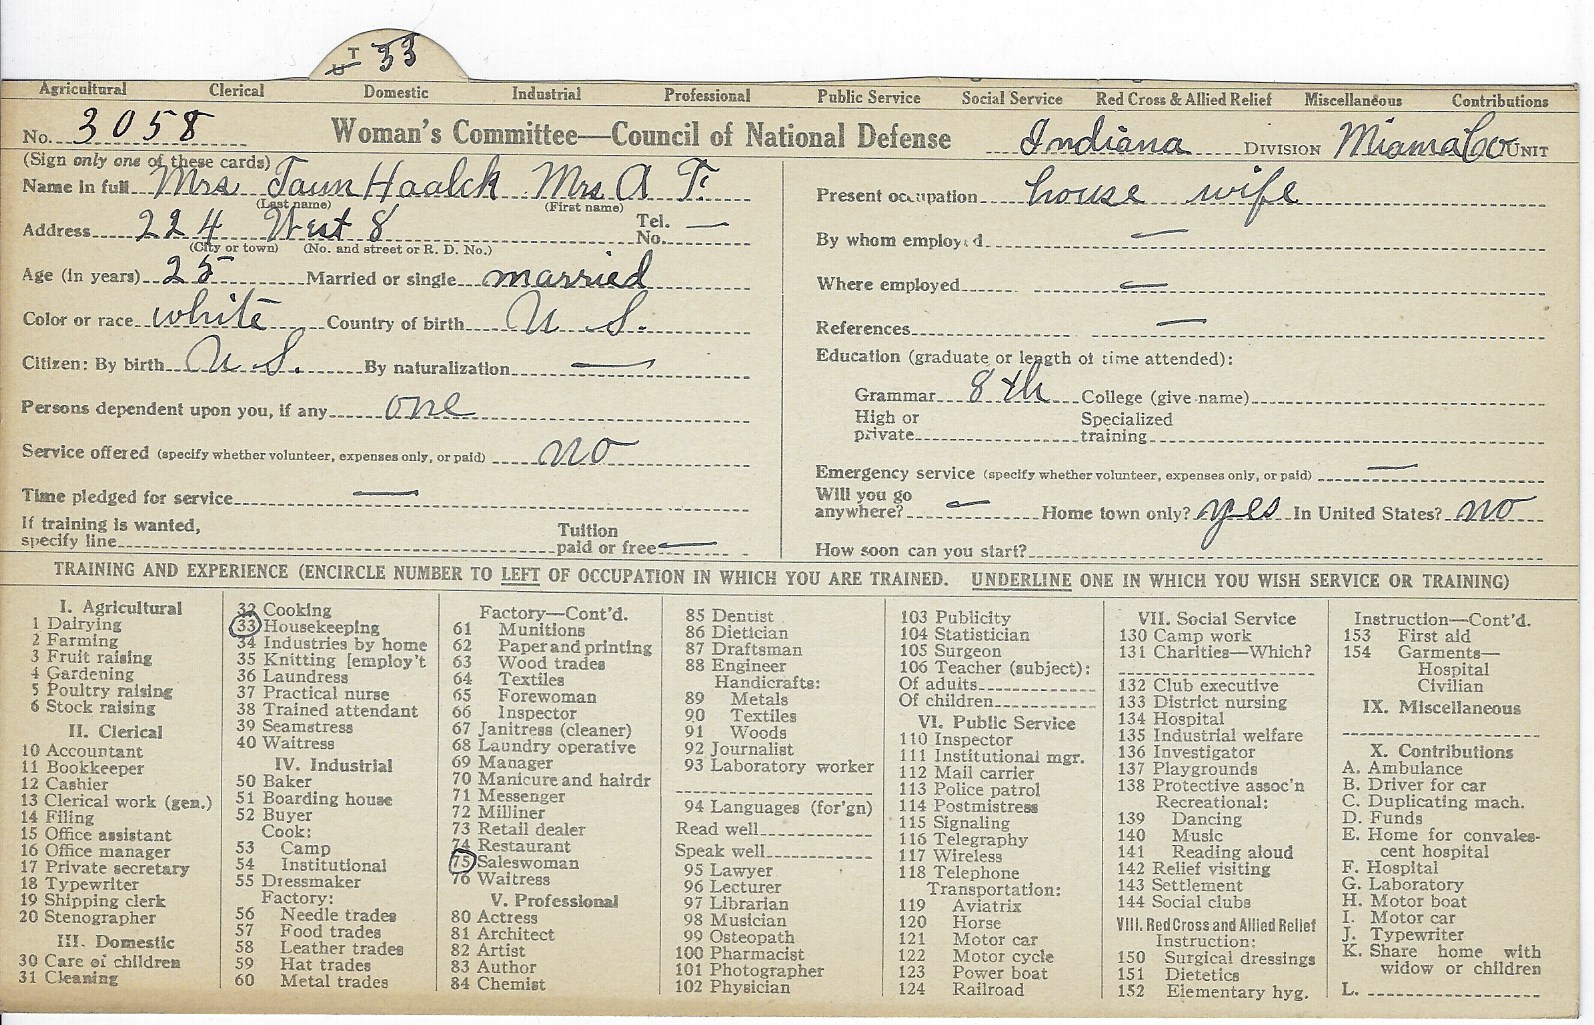 T
U 33
Agricultural Clerical Domestic Industrial Professional Public Service Social Service Red Cross & Allied Relief Miscellaneous Contributions
No. 3058 Woman's Committee—Council of National Defense Indiana DIVISION Miami Co UNIT
(Sign only one of these cards)
Name in full Mrs Haalck Mrs A F.
(Last name) (First name)
Address 224 West 8 Tel. No. —
(City or town) (No. and street or R. D. No.)
Age (in years) 25 Married or single married
Color or race white Country of birth U S.
Citizen: By birth U S. By naturalization —
Persons dependent upon you, if any one
Service offered (specify whether volunteer, expenses only, or paid) no
Time pledged for service —
If training is wanted,
specify line Tuition paid or free —
Present occupation house wife
By whom employed —
Where employed —
References —
Education (graduate or length of time attended):
Grammar 8th College (give name)
High or private Specialized training
Emergency service (specify whether volunteer, expenses only, or paid) —
Will you go anywhere? — Home town only? yes In United States? no
How soon can you start?
TRAINING AND EXPERIENCE (ENCIRCLE NUMBER TO LEFT OF OCCUPATION IN WHICH YOU ARE TRAINED. UNDERLINE ONE IN WHICH YOU WISH SERVICE OR TRAINING)
I. Agricultural
1 Dairying
2 Farming
3 Fruit raising
4 Gardening
5 Poultry raising
6 Stock raising
II. Clerical
10 Accountant
11 Bookkeeper
12 Cashier
13 Clerical work (gen.)
14 Filing
15 Office assistant
16 Office manager
17 Private secretary
18 Typewriter
19 Shipping clerk
20 Stenographer
III. Domestic
30 Care of children
31 Cleaning
32 Cooking
33 Housekeeping
34 Industries by home
35 Knitting [employ't
36 Laundress
37 Practical nurse
38 Trained attendant
39 Seamstress
40 Waitress
IV. Industrial
50 Baker
51 Boarding house
52 Buyer
Cook:
53 Camp
54 Institutional
55 Dressmaker
Factory:
56 Needle trades
57 Food trades
58 Leather trades
59 Hat trades
60 Metal trades
Factory—Cont'd.
61 Munitions
62 Paper and printing
63 Wood trades
64 Textiles
65 Forewoman
66 Inspector
67 Janitress (cleaner)
68 Laundry operative
69 Manager
70 Manicure and hairdr
71 Messenger
72 Milliner
73 Retail dealer
74 Restaurant
75 Saleswoman
76 Waitress
V. Professional
80 Actress
81 Architect
82 Artist
83 Author
84 Chemist
85 Dentist
86 Dietician
87 Draftsman
88 Engineer
Handicrafts:
89 Metals
90 Textiles
91 Woods
92 Journalist
93 Laboratory worker
94 Languages (for'gn)
Read well
Speak well
95 Lawyer
96 Lecturer
97 Librarian
98 Musician
99 Osteopath
100 Pharmacist
101 Photographer
102 Physician
103 Publicity
104 Statistician
105 Surgeon
106 Teacher (subject):
Of adults
Of children
VI. Public Service
110 Inspector
111 Institutional mgr.
112 Mail carrier
113 Police patrol
114 Postmistress
115 Signaling
116 Telegraphy
117 Wireless
118 Telephone
Transportation:
119 Aviatrix
120 Horse
121 Motor car
122 Motor cycle
123 Power boat
124 Railroad
VII. Social Service
130 Camp work
131 Charities—Which?
132 Club executive
133 District nursing
134 Hospital
135 Industrial welfare
136 Investigator
137 Playgrounds
138 Protective assoc'n
Recreational:
139 Dancing
140 Music
141 Reading aloud
142 Relief visiting
143 Settlement
144 Social clubs
VIII. Red Cross and Allied Relief
Instruction:
150 Surgical dressings
151 Dietetics
152 Elementary hyg.
Instruction—Cont'd.
153 First aid
154 Garments—
Hospital
Civilian
IX. Miscellaneous
X. Contributions
A. Ambulance
B. Driver for car
C. Duplicating mach.
D. Funds
E. Home for convales-
cent hospital
F. Hospital
G. Laboratory
H. Motor boat
I. Motor car
J. Typewriter
K. Share home with
widow or children
L.